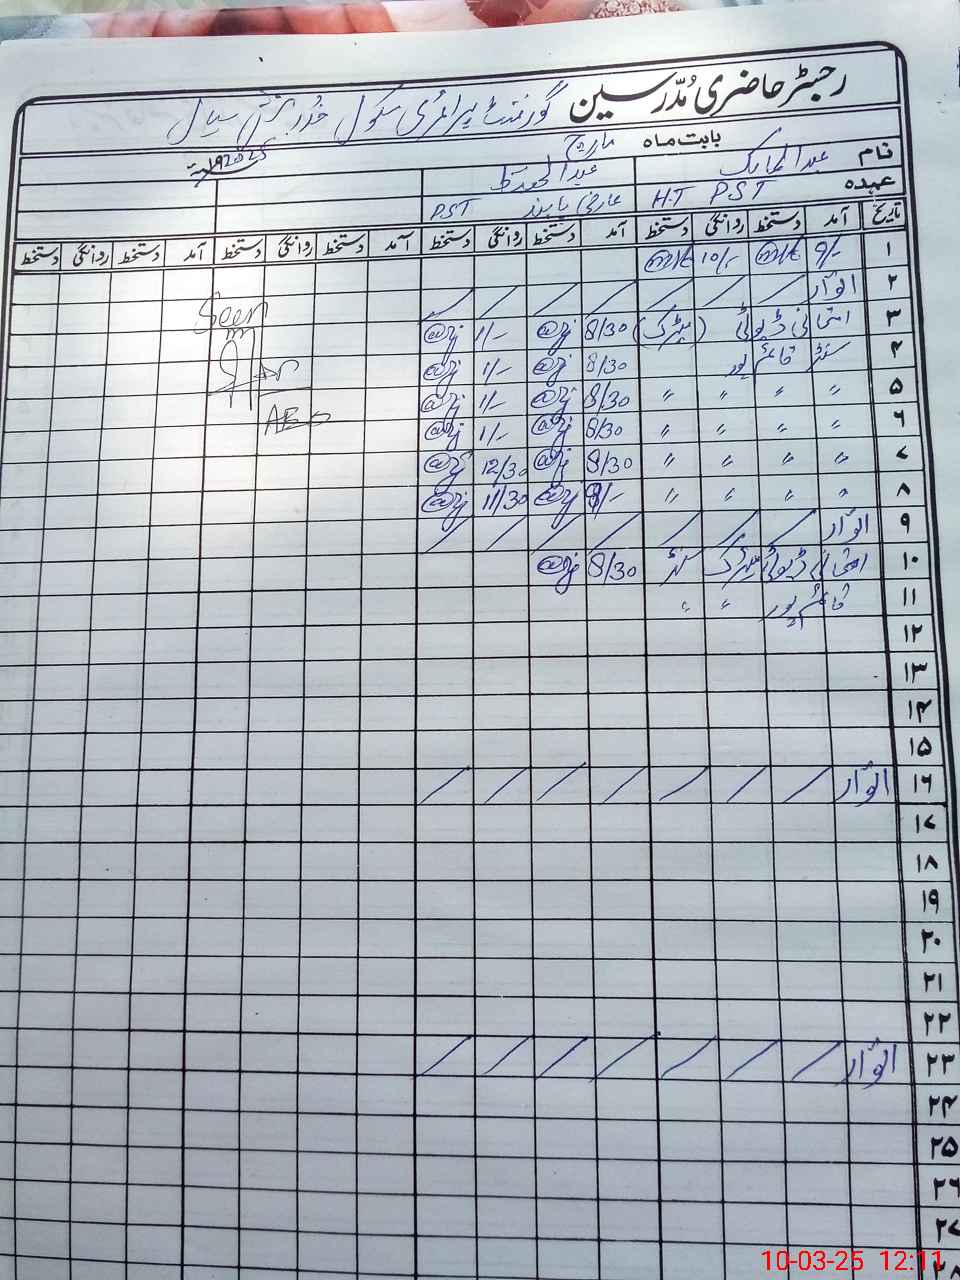 رجسٹر حاضری مُدّرسین گورنمنٹ پرائمری سکول
بابت ماہ مارچ 2025
نام عبدالمالک
عہدہ H.T P.S.T عارضی P.S.T
تاریخ آمد دستخط روانگی دستخط آمد دستخط روانگی دستخط آمد دستخط روانگی دستخط آمد دستخط روانگی دستخط
۱ 9/- 10/-
۲ اتوار / / / / / / /
۳ امتحانی ڈیوٹی (میٹرک) 8/30 1/-
۴ سنٹر قائم پور 8/30 1/-
۵ " " " " 8/30 1/-
۶ " " " " 8/30 1/-
۷ " " " " 8/30 12/30
۸ " " " " 9/- 11/30
۹ اتوار / / / / / / /
۱۰ امتحانی ڈیوٹی میٹرک سنٹر 8/30
۱۱ قائم پور " "
۱۲
۱۳
۱۴
۱۵
۱۶ اتوار / / / / / / /
۱۷
۱۸
۱۹
۲۰
۲۱
۲۲
۲۳ اتوار / / / / / / /
۲۴
۲۵
۲۶
۲۷
۲۸
Seen
10-03-25 12:11